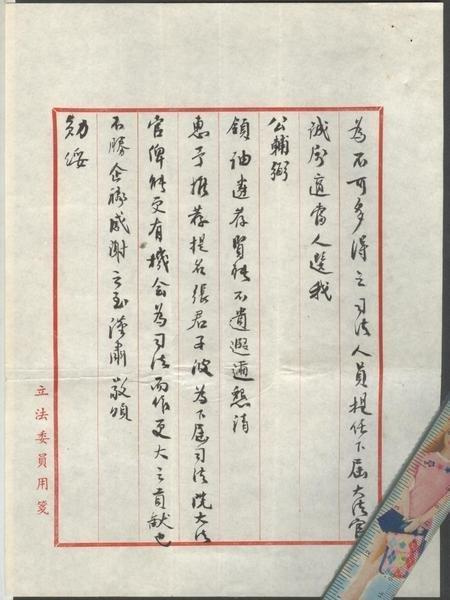 為不可多得之司法人員提任下屆大法官
誠屬適當人選我
公輔弼
領袖遴荐賢能不遺遐邇懇請
惠予推荐提名張君子波為下屆司法院大法
官俾能更有機會為司法而作更大之貢獻也
不勝企禱感謝之至謹肅敬頌
勛綏
立法委員用箋